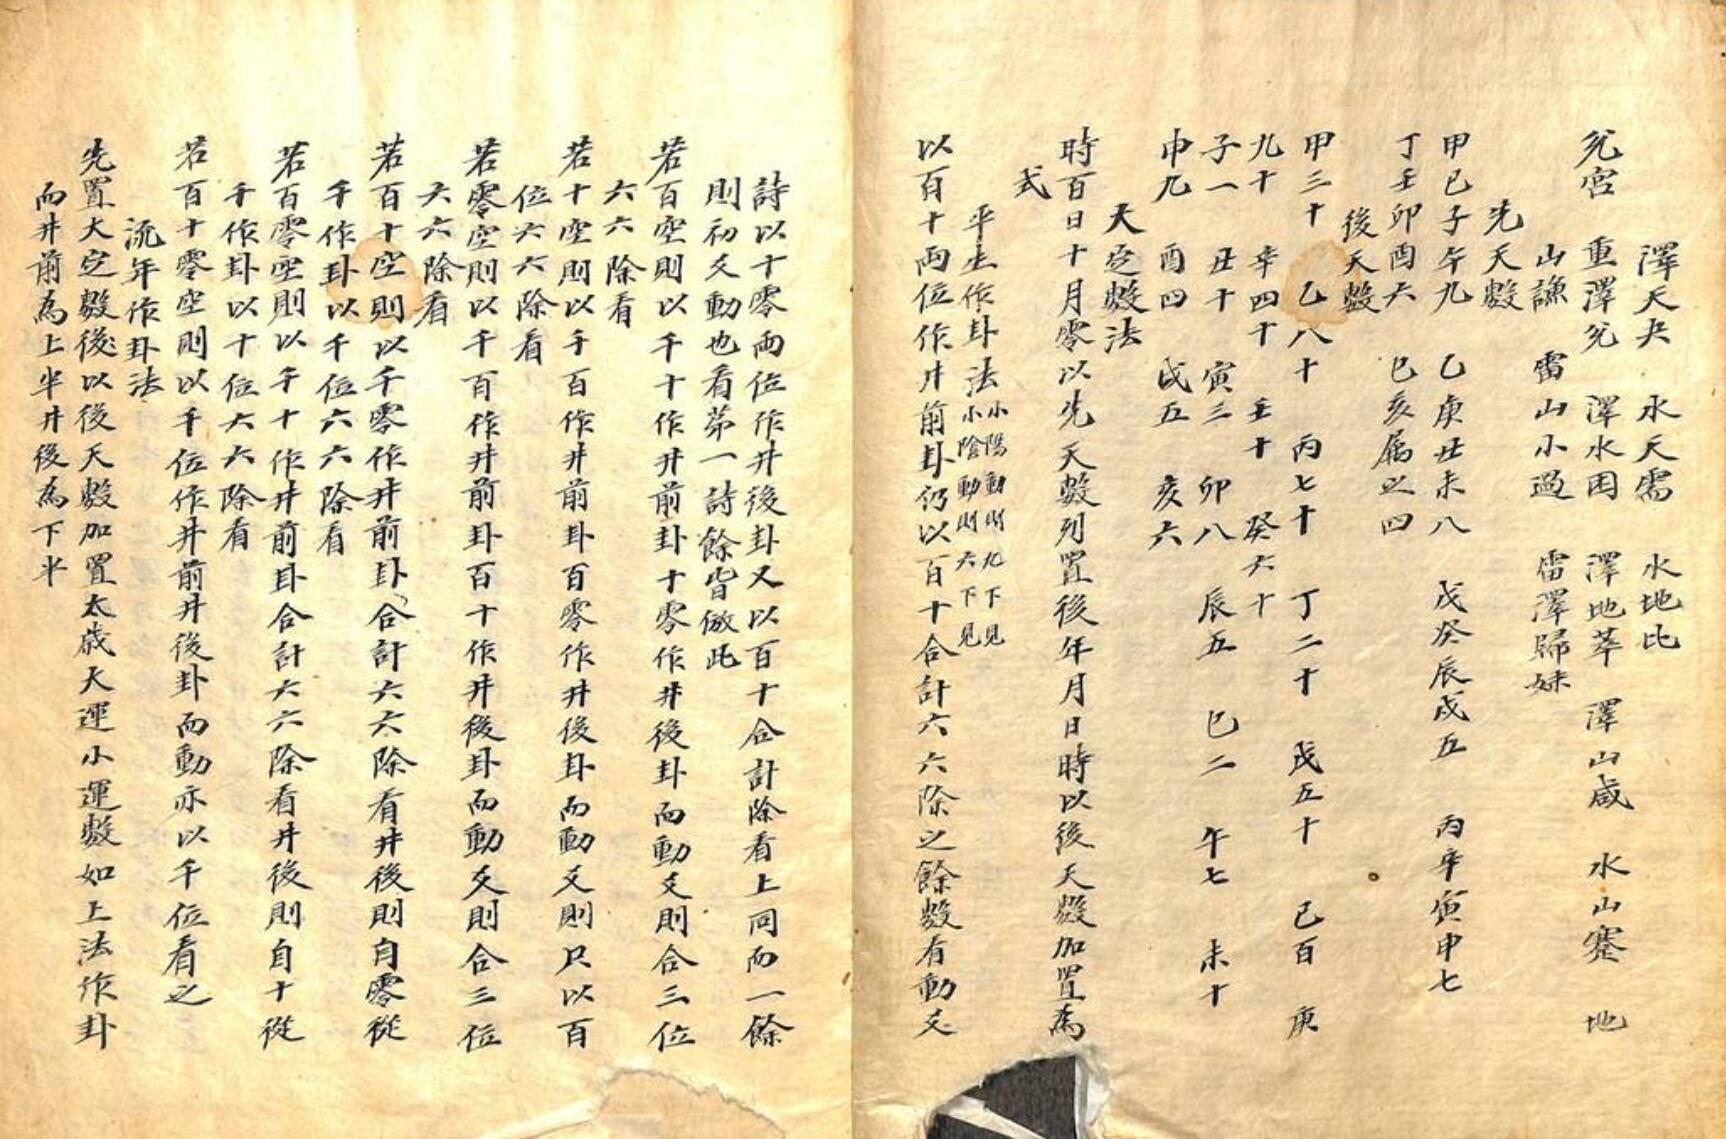 澤天夬 水天需 水地比
兌宮 重澤兌 澤水困 澤地萃 澤山咸 水山蹇 地
山謙 雷山小過 雷澤歸妹
先天數
甲己子午九 乙庚丑未八 戊癸辰戌五 丙辛寅申七
丁壬卯酉六 巳亥屬之四
後天數
甲三十 乙八十 丙七十 丁二十 戊五十 己百 庚
九十 辛四十 壬十 癸六十
子一 丑十 寅三 卯八 辰五 巳二 午七 未十
申九 酉四 戌五 亥六
大定數法
時百日十月零以先天數列置後年月日時以後天數加置爲
式
平生作卦法 小陽動則九下見 小陰動則六下見
以百十兩位作井前卦仍以百十合計六六除之餘數有動爻
詩以十零兩位作井後卦又以百十合計除看上同而一餘
則初爻動也看第一詩餘皆倣此
若百空則以千十作井前卦十零作井後卦而動爻則合三位
六六除看
若十空則以千百作井前卦百零作井後卦而動爻則只以百
位六六除看
若零空則以千百作井前卦百十作井後卦而動爻則合三位
六六除看
若百十空則以千零作井前卦合計六六除看井後則自零從
千作卦以千位六六除看
若百零空則以千十作井前卦合計六六除看井後則自十從
千作卦以十位六六除看
若百十零空則以千位作井前井後卦而動亦以千位看之
流年作卦法
先置大定數後以後天數加置太歲大運小運數如上法作卦
而井前爲上半井後爲下半